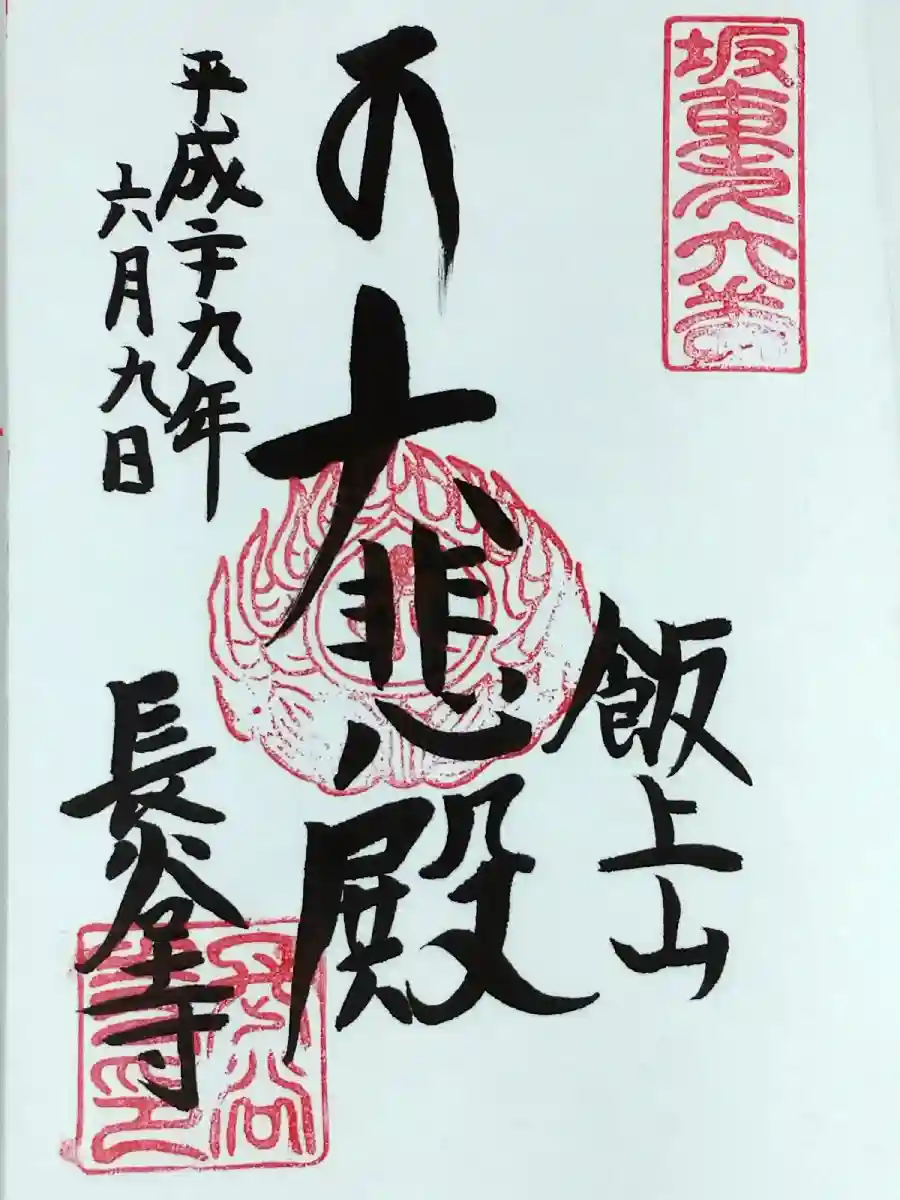 坂東第六番
飯上山
大悲殿
平成二十九年
六月九日
長谷寺
長谷寺印